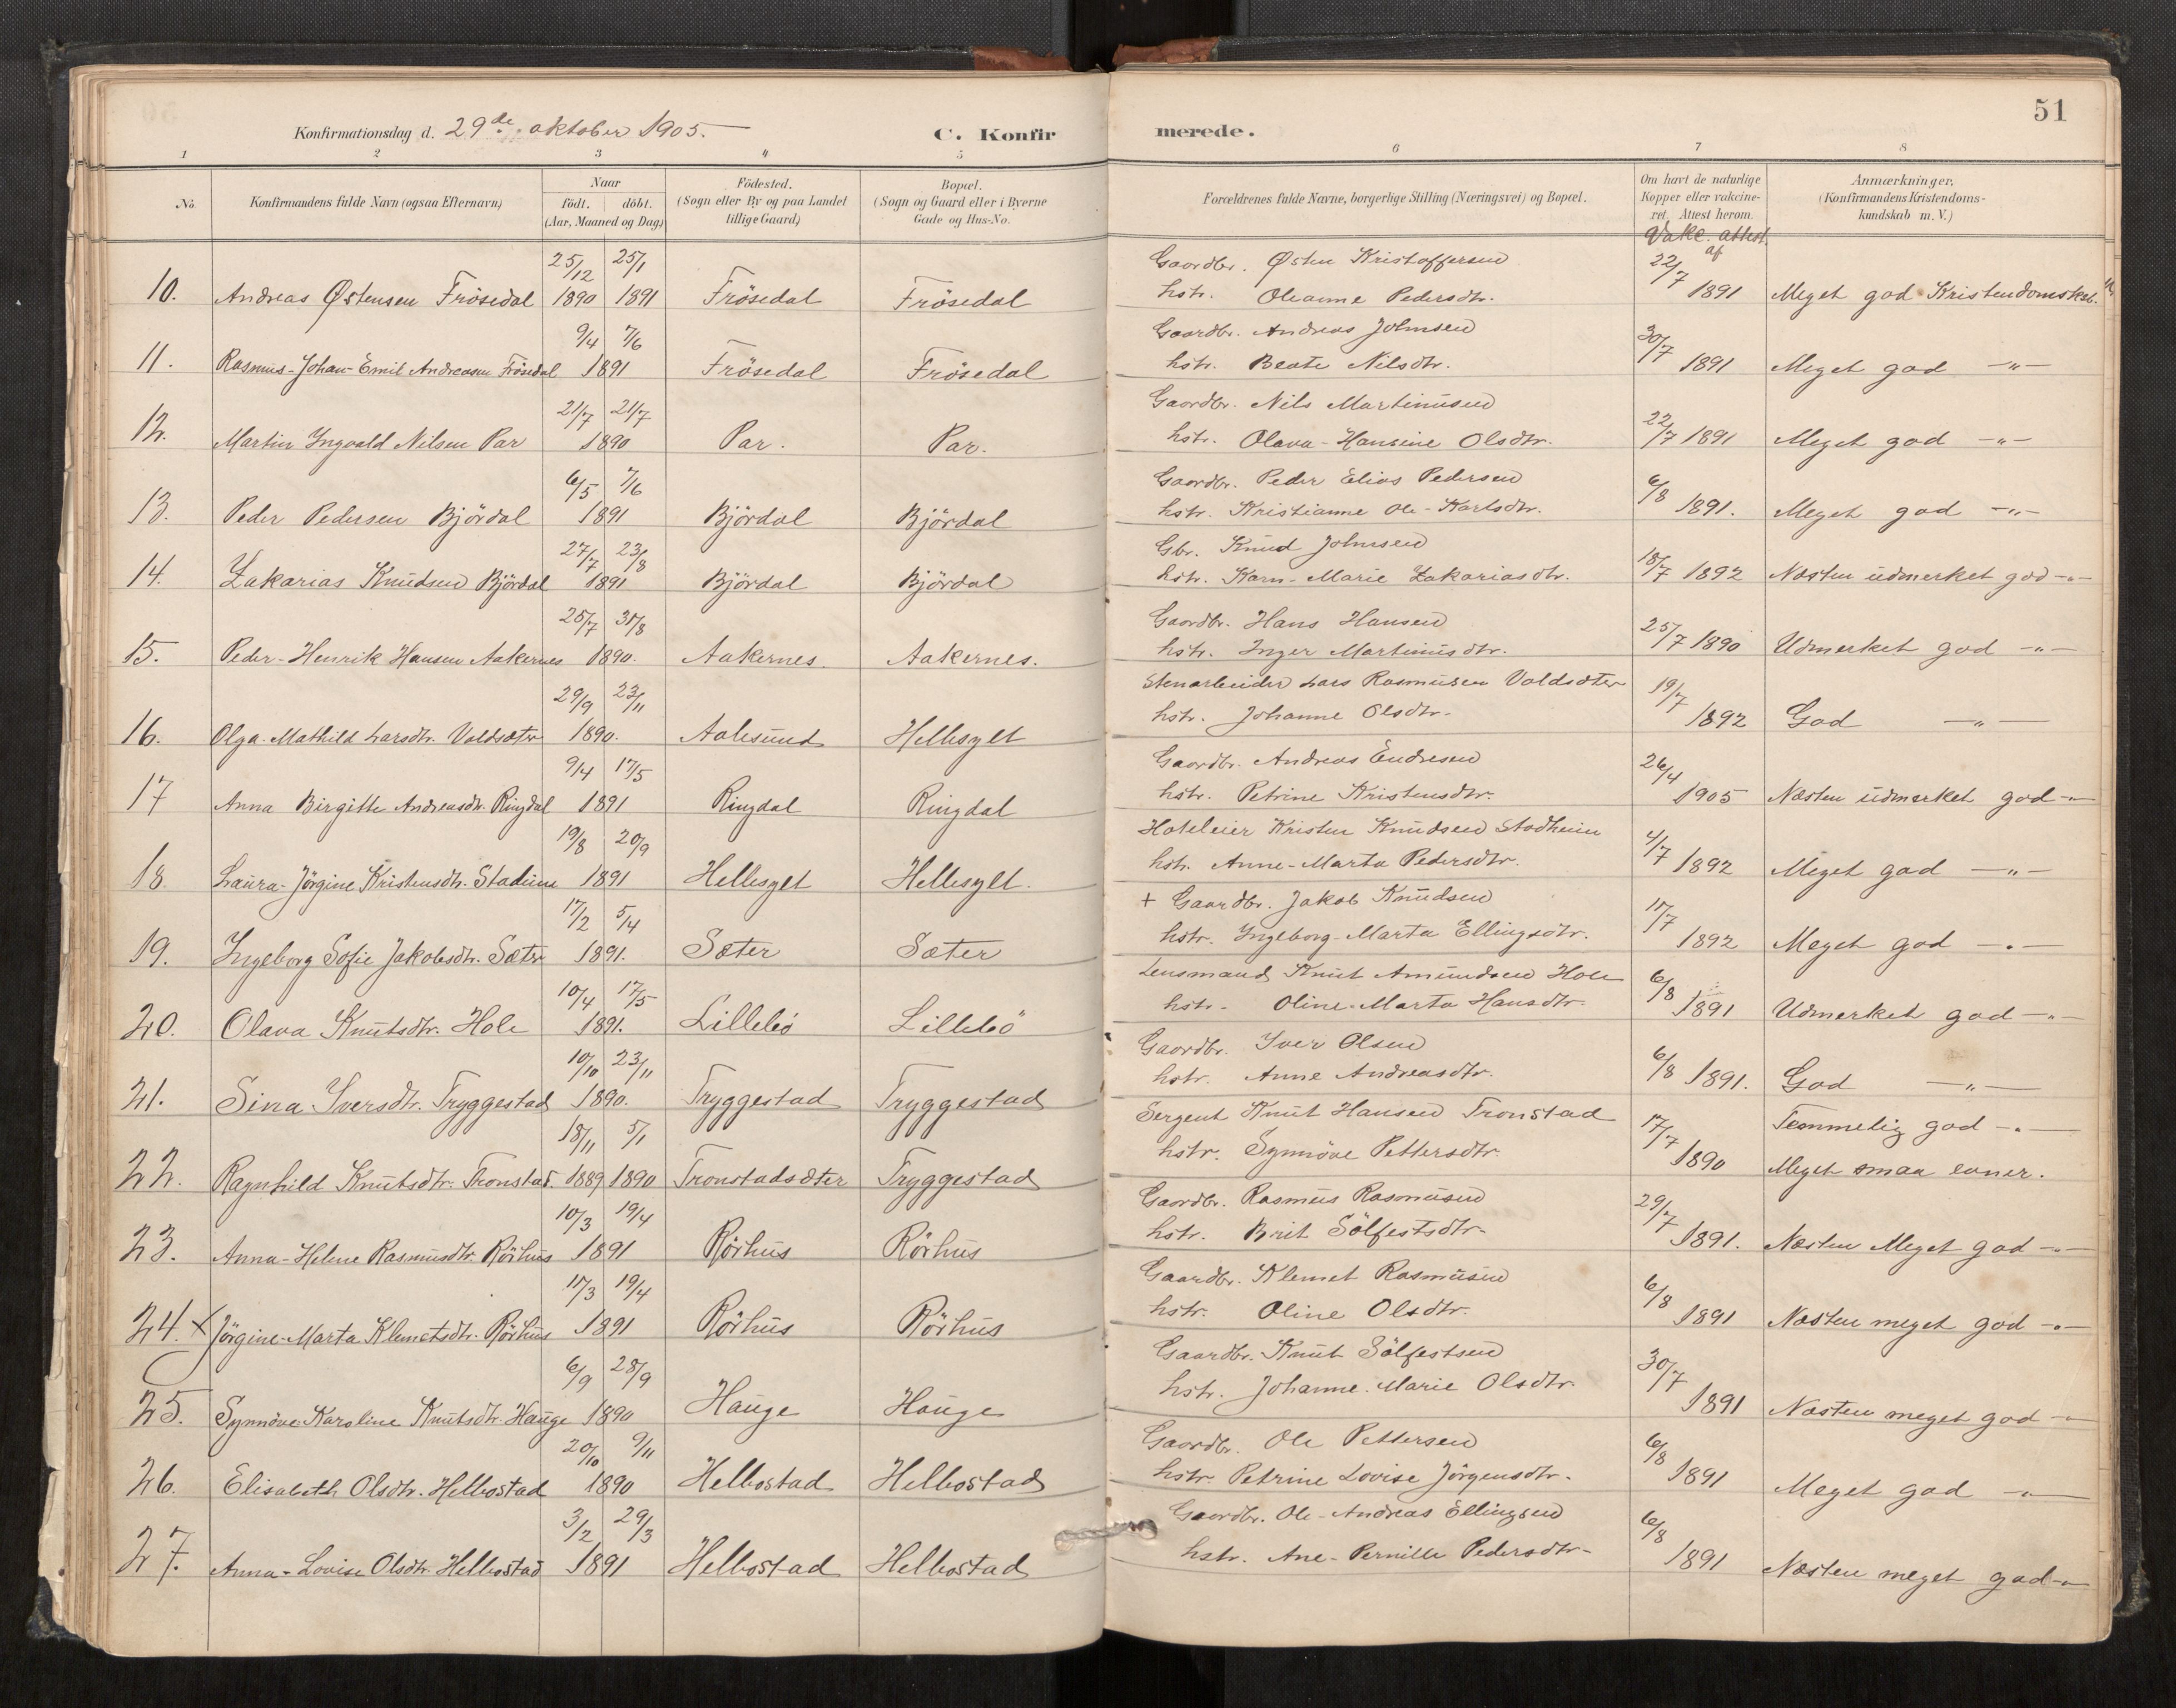 Konfirmationsdag d. 29de oktober 1905.
C. Konfir
merede.
51
1 2 3 4 5 6 7 8
No
Konfirmandens fulde Navn (ogsaa Efternavn)
Naar
Födt. döbt.
(Aar, Maaned og Dag)
Födested.
(Sogn eller By og paa Landet
tillige Gaard)
Bopæl.
(Sogn og Gaard eller i Byerne
Gade og Hus-No.
Forældrenes fulde Navne, borgerlige Stilling (Næringsvei) og Bopæl.
Om havt de naturlige
Kopper eller vakcine-
ret. Attest herom.
Vakc. attest.
af
Anmærkninger.
(Konfirmandens Kristendoms-
kundskab m. V.)
25/12 25/1 Gaardbr. Østen Kristoffersen 22/7
10. Andreas Østensen Frösedal 1890 1891 Frösedal Frösedal hstr. Oleanne Pedersdtr. 1891 Meget god Kristendomskab.
9/4 7/6 Gaardbr. Andreas Johnsen 30/7
11. Rasmus-Johan-Emil Andreasen Frösedal 1891 Frösedal Frösedal hstr. Beate Nilsdtr. 1891 Meget god -"-
21/7 21/7 Gaardbr. Nils Martinusen 22/7
12. Martin Ingvald Nilsen Par 1890 Par. Par. hstr. Olava-Hansine Olsdtr. 1891 Meget god -"-
6/5 7/6 Gaardbr. Peder Elias Pedersen 6/8
13. Peder Pedersen Björdal 1891 Björdal Björdal hstr. Kristianne Ole-Karlsdtr. 1891. Meget god -"-
27/7 23/8 Gbr. Knud Johnsen 18/7
14. Zakarias Knudsen Björdal 1891 Björdal Björdal hstr. Karn-Marie Zakariasdtr. 1892 Næsten udmerket god -"-
25/7 31/8 Gaardbr. Hans Hansen 25/7
15. Peder-Henrik Hansen Aakernes 1890. Aakernes. Aakernes. hstr. Inger Martinusdtr. 1890 Udmerket god -"-
29/9 23/11 Stenarbeider Lars Rasmusen Valdsæter 19/7
16. Olga-Mathild Larsdtr. Valdsæter 1890. Aalesund Hellesylt hstr. Johanne Olsdtr. 1892 God -"-
9/4 17/5 Gaardbr. Andreas Endresen 26/4
17 Anna Birgitte Andreasdtr. Ringdal 1891 Ringdal Ringdal hstr. Petrine Kristensdtr. 1905 Næsten udmerket god -"-
19/8 20/9 Hoteleier Kristen Knudsen Stadheim 4/7
18. Laura-Jörgine Kristensdtr. Stadime 1891 Hellesylt Hellesylt. hstr. Anne-Marta Pedersdtr. 1892 Meget god -"-
17/2 5/4 + Gaardbr. Jakob Knudsen 17/7
19. Ingeborg Sofie Jakobsdtr. Sæter 1891. Sæter Sæter hstr. Ingeborg-Marta Ellingsdtr. 1892 Meget god -"-
10/4 17/5 Lensmand Knut Amundsen Hole 6/8
20. Olava Knutsdtr. Hole 1891. Lillebö Lillebö hstr. Oline-Marta Hansdtr. 1891 Udmerket god -"-
10/10 23/11 Gaardbr. Iver Olsen 6/8
21. Sina Iversdtr. Tryggestad 1890. Tryggestad Tryggestad hstr. Anne Andreasdtr. 1891. God -"-
18/11 5/1 Sergent Knut Hansen Tronstad 17/7 Temmelig god -"-
22. Ragnhild Knutsdtr. Tronstad. 1889 1890 Tronstadsæter Tryggestad hstr. Synnöve Pettersdtr. 1890 Meget smaa evner.
10/3 19/4 Gaardbr. Rasmus Rasmusen 29/7
23. Anna-Helene Rasmusdtr. Rörhus 1891 Rörhus Rörhus hstr. Brit Sölfestsdtr. 1891. Næsten Meget god -"-
17/3 19/4 Gaardbr. Klemet Rasmusen 6/8
24. x Jörgine-Marta Klemetsdtr. Rörhus 1891 Rörhus Rörhus hstr. Oline Olsdtr. 1891 Næsten meget god -"-
6/9 28/9 Gaardbr. Knut Sölfestsen 30/7
25. Synnöve Karoline Knutsdtr. Hauge 1890 Hauge Hauge hstr. Johanne-Marie Olsdtr. 1891 Næsten meget god -"-
20/10 9/11 Gaardbr. Ole Pettersen 6/8
26. Elisabeth Olsdtr. Helbostad 1890 Helbostad Helbostad hstr. Petrine Lovise Jörgensdtr. 1891 Meget god -"-
3/2 29/3 Gaardbr. Ole-Andreas Ellingsen 6/8
27. Anna-Lovise Olsdtr. Helbostad 1891 Helbostad Helbostad hstr. Ane-Pernille Pedersdtr. 1891 Næsten meget god -"-